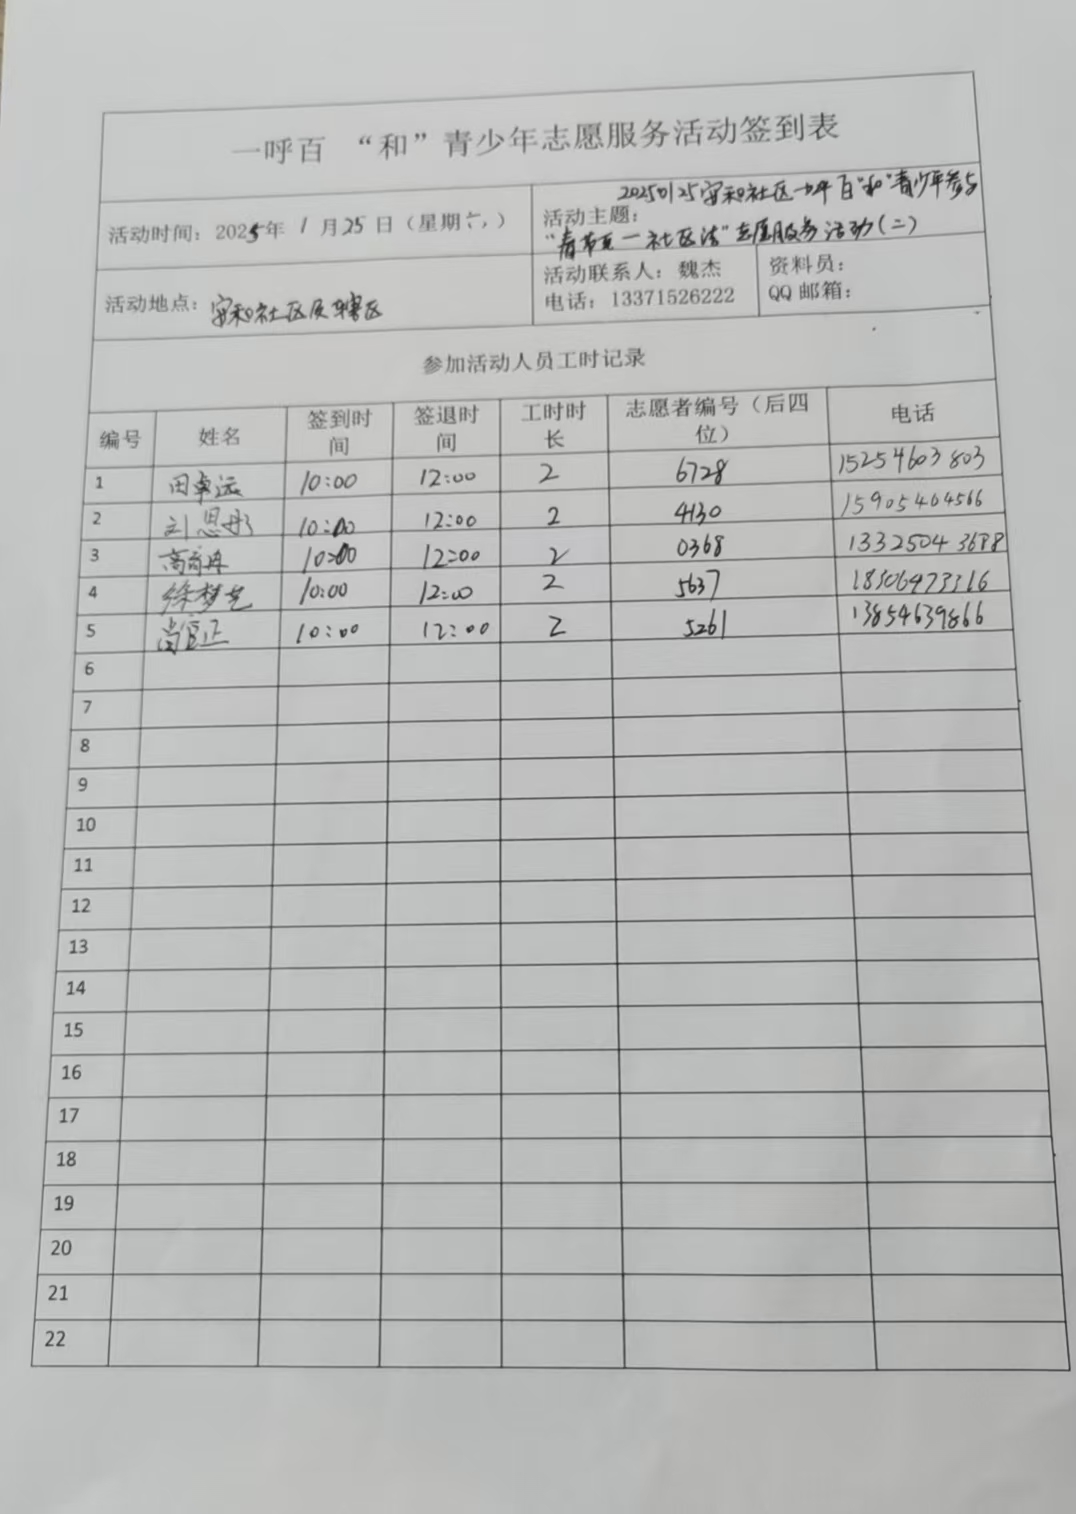 一呼百 “和”青少年志愿服务活动签到表
活动时间：2025年 1 月25 日（星期六）
活动主题：20250125安和社区一呼百“和”青少年参与
“春节 一社区洁”志愿服务活动（二）
活动地点：安和社区及辖区
活动联系人：魏杰
电话：13371526222
资料员：
QQ 邮箱：
参加活动人员工时记录
编号 姓名 签到时间 签退时间 工时时长 志愿者编号（后四位） 电话
1 田卓远 10:00 12:00 2 6728 15254603803
2 刘恩彤 10:00 12:00 2 4130 15905404566
3 高 冉 10:00 12:00 2 0368
4 徐梦艺 10:00 12:00 2 5637
5 尚 正 10:00 12:00 2 5261 13854639866
6
7
8
9
10
11
12
13
14
15
16
17
18
19
20
21
22